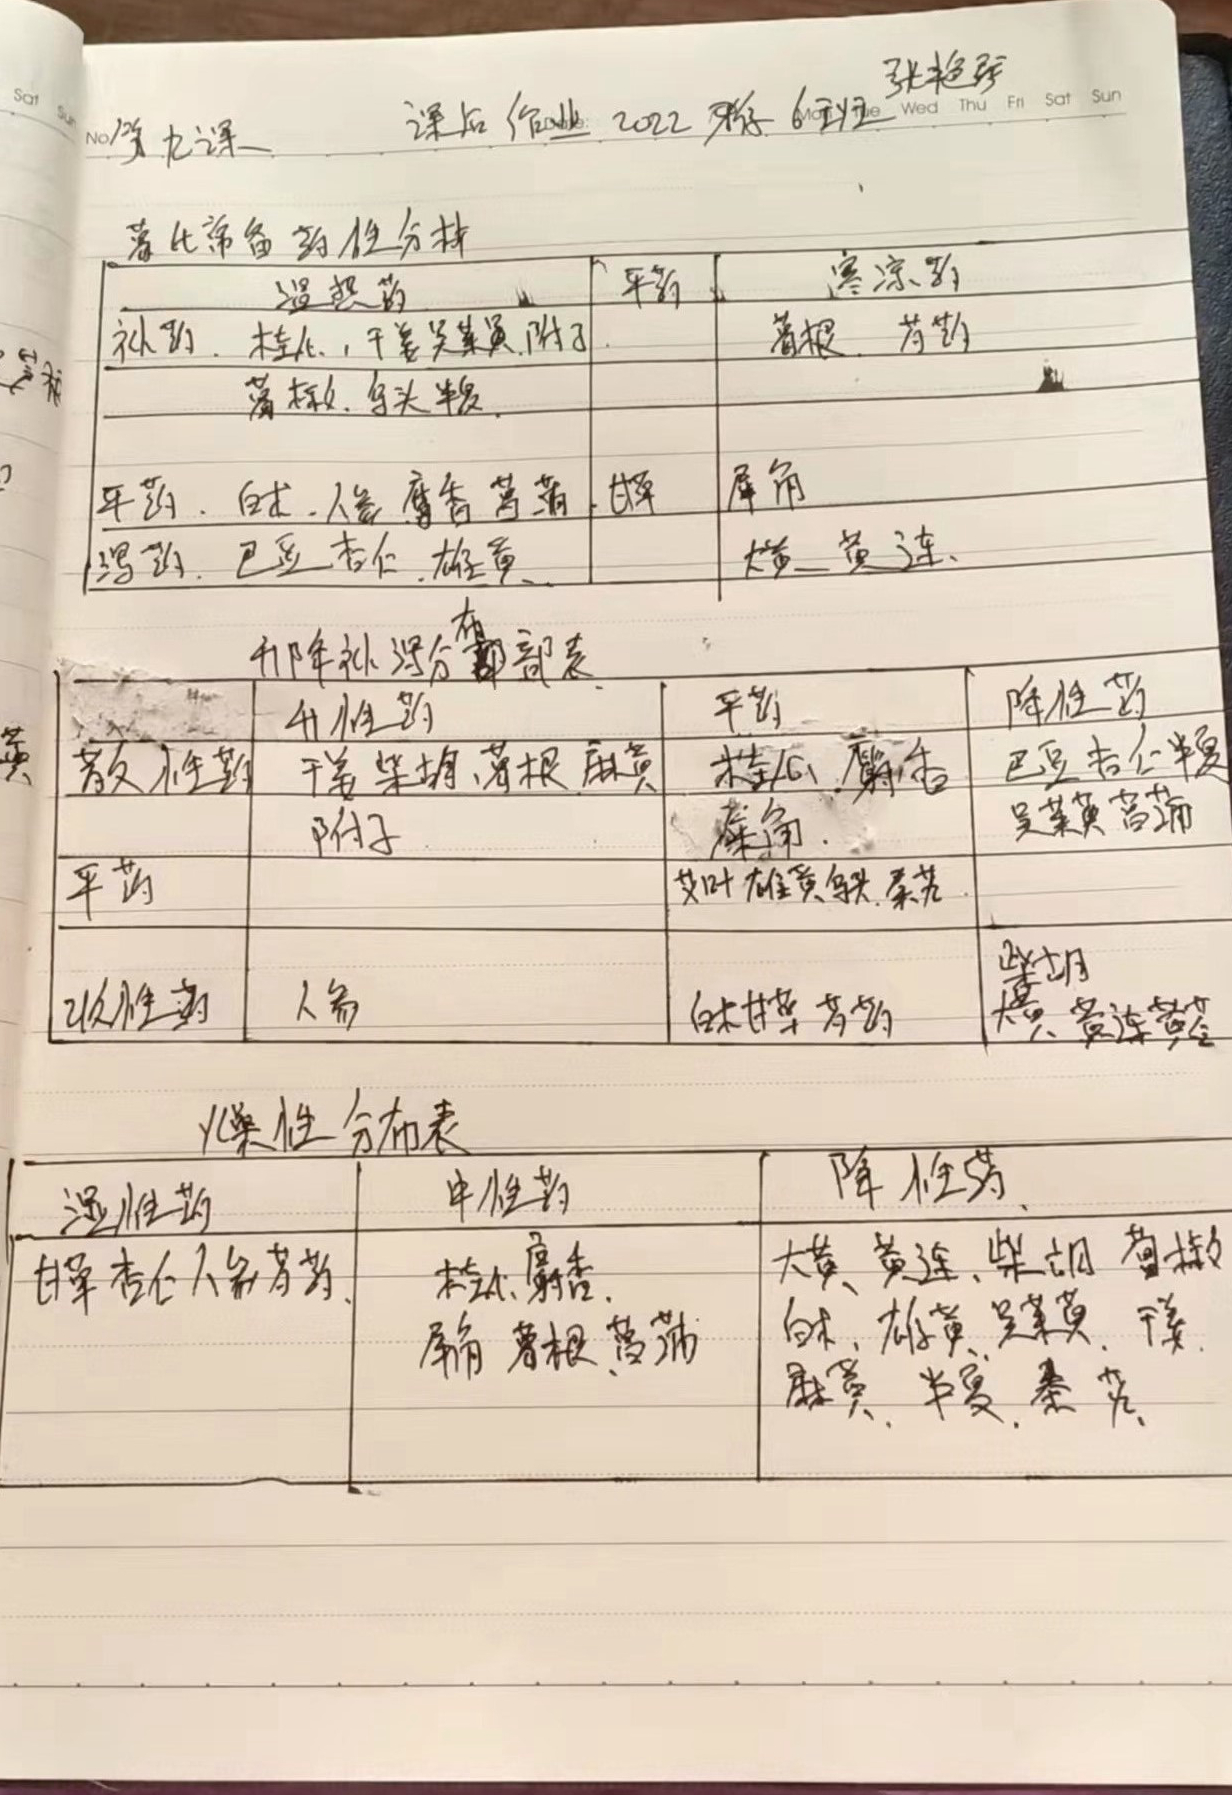 Sat Sun
No 第九课
课后作业 2022 6班
Wed Thu Fri Sat Sun
常备药性分析
温热药 平药 寒凉药
补药. 桂心, 干姜 吴茱萸 附子 葛根. 芍药
蜀椒. 乌头 半夏.
平药. 白术. 人参 麝香 菖蒲. 甘草 犀角
泻药. 巴豆 杏仁. 雄黄 大黄 黄连.
升降补泻分布部表
升性药 平药 降性药
散性药 干姜 柴胡 葛根 麻黄 桂心 麝香 巴豆 杏仁 半夏
附子 犀角. 吴茱萸 菖蒲
平药 艾叶 雄黄 乌头. 秦艽
柴胡
收性药 人参 白术 甘草 芍药 大黄 黄连 黄芩
燥性分布表
湿性药 中性药 降性药
甘草 杏仁 人参 芍药. 桂心. 麝香. 大黄 黄连. 柴胡 蜀椒
犀角 葛根. 菖蒲 白术. 雄黄. 吴茱萸. 干姜.
麻黄. 半夏. 秦艽.
黄